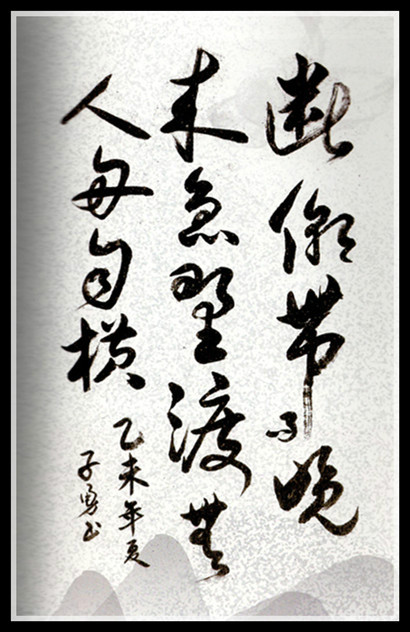 潮帶雨晚
来急野渡無
人舟自横
乙未年夏
子勇书